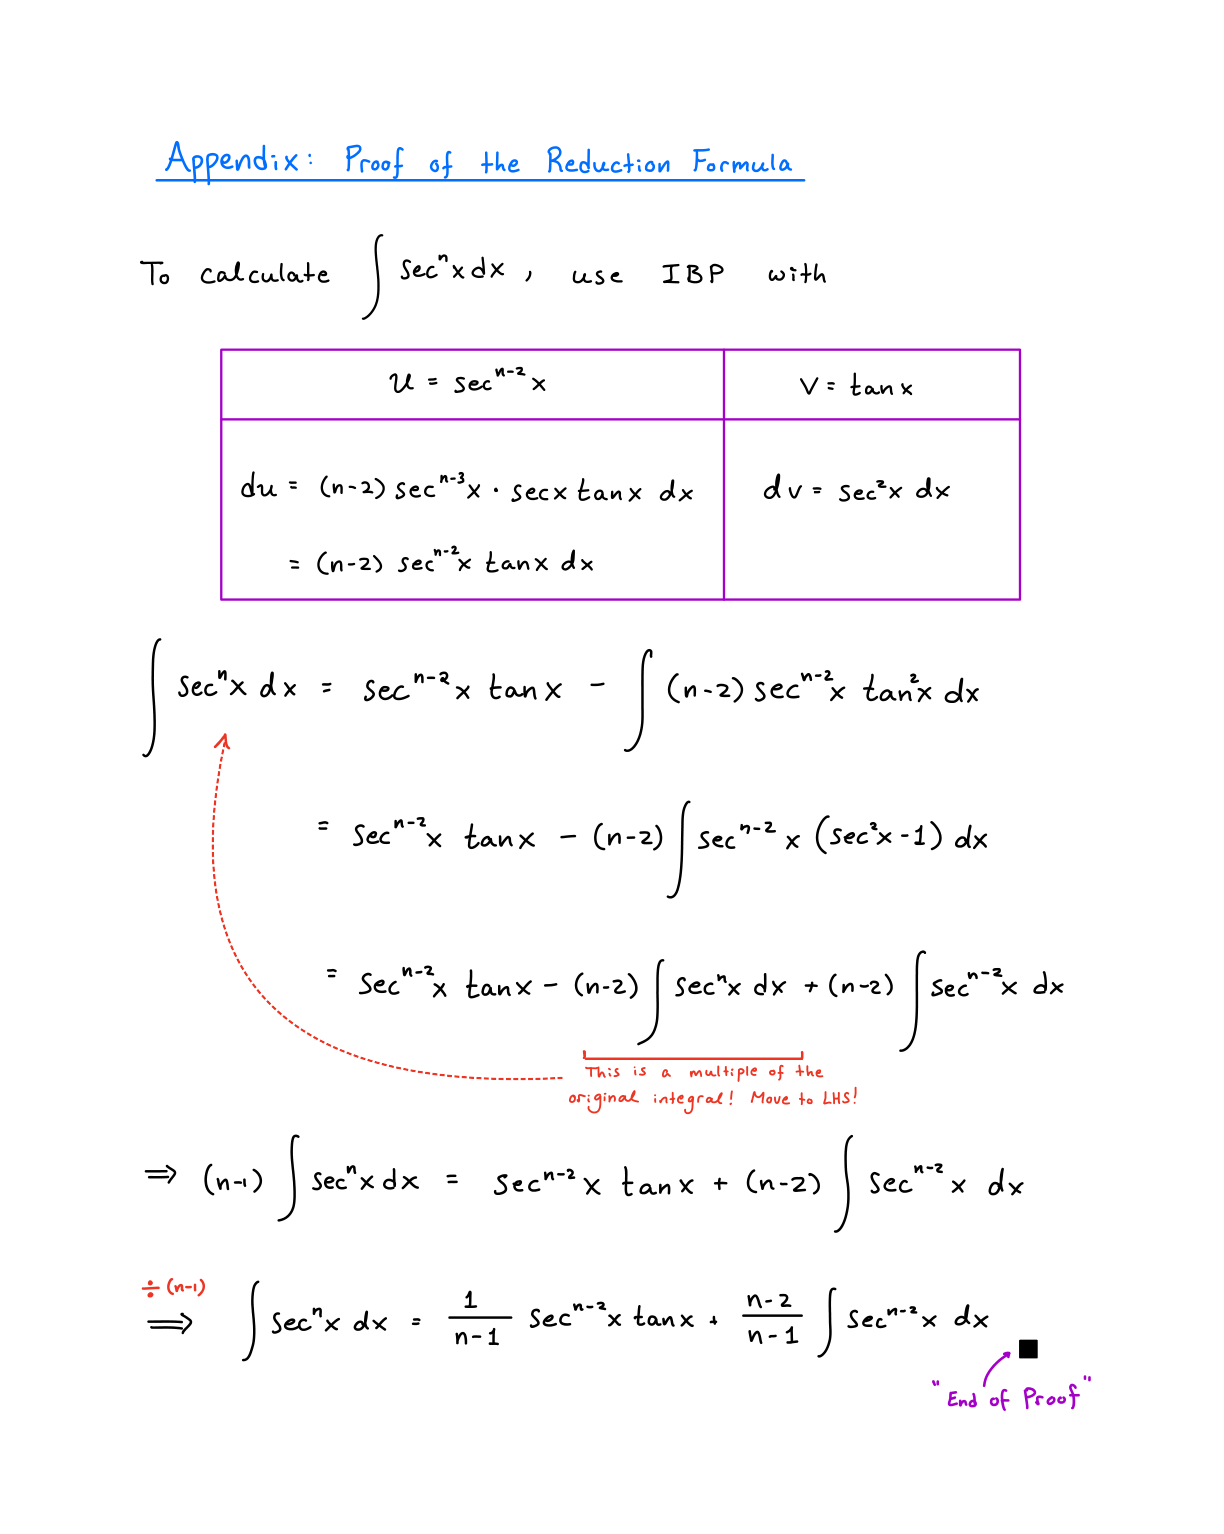 Appendix: Proof of the Reduction Formula
To calculate ∫ secⁿx dx , use IBP with
u = secⁿ⁻² x
v = tan x
du = (n-2) secⁿ⁻³x · sec x tan x dx
= (n-2) secⁿ⁻²x tan x dx
dv = sec²x dx
∫ secⁿx dx = secⁿ⁻²x tan x - ∫ (n-2) secⁿ⁻²x tan²x dx
= secⁿ⁻²x tan x - (n-2) ∫ secⁿ⁻² x (sec²x - 1) dx
= secⁿ⁻²x tan x - (n-2) ∫ secⁿx dx + (n-2) ∫ secⁿ⁻²x dx
This is a multiple of the
original integral! Move to LHS!
⇒ (n-1) ∫ secⁿx dx = secⁿ⁻²x tan x + (n-2) ∫ secⁿ⁻² x dx
÷ (n-1)
⟹ ∫ secⁿx dx = 1/(n-1) secⁿ⁻²x tan x + (n-2)/(n-1) ∫ secⁿ⁻²x dx
■
"End of Proof"